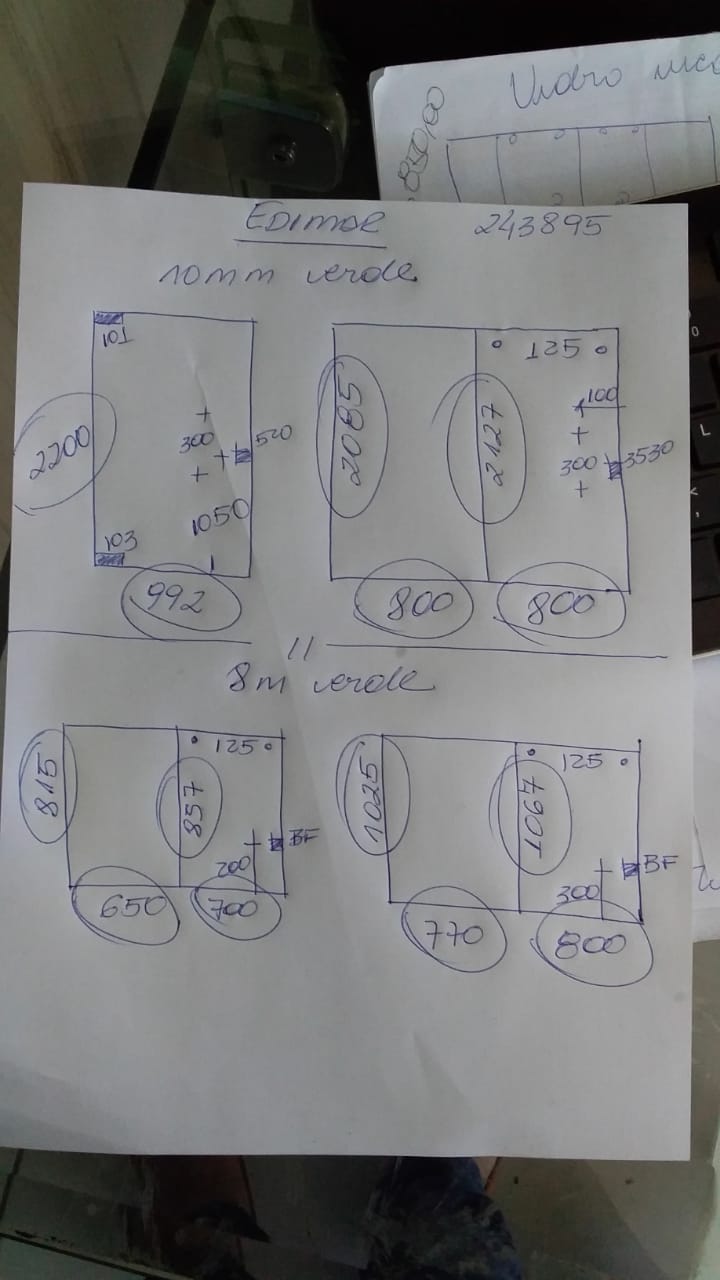 Vidro
850,00
EDIMAR 243895
10mm verde
101
2200
300
520
1050
103
992
2085
2127
125
100
300
3530
800
800
11
8m verde
815
857
125
BF
200
650
700
1025
1067
125
BF
300
770
800